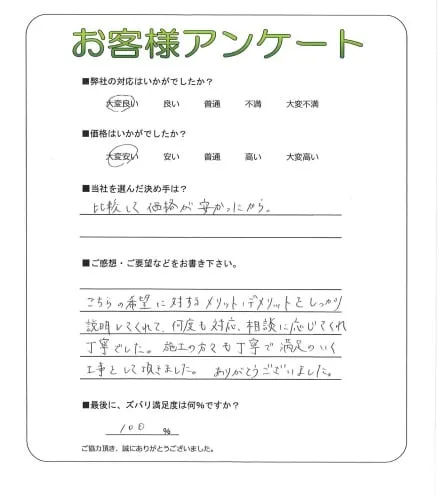 お客様アンケート
■弊社の対応はいかがでしたか？
大変良い 良い 普通 不満 大変不満
■価格はいかがでしたか？
大変安い 安い 普通 高い 大変高い
■当社を選んだ決め手は？
比較して価格が安かったから。
■ご感想・ご要望などをお書き下さい。
こちらの希望に対するメリット,デメリットとしっかり
説明してくれて、何度も対応、相談に応じてくれ
丁寧でした。施工の方々も丁寧で満足のいく
工事として頂きました。ありがとうございました。
■最後に、ズバリ満足度は何%ですか？
100 %
ご協力頂き、誠にありがとうございました。